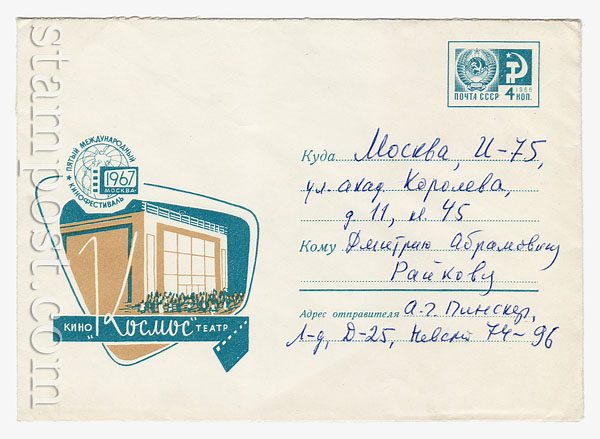 stamp-post.com
ПОЧТА СССР 4 1966 КОП.
ПЯТЫЙ МЕЖДУНАРОДНЫЙ
КИНОФЕСТИВАЛЬ
1967
МОСКВА
КИНО „Космос" ТЕАТР
Куда Москва, И-75,
ул. акад. Королева,
д 11, к. 45
Кому Дмитрию Абрамовичу
Райкову
Адрес отправителя А. Г. Пинскер,
Л-д, Д-25, Невский 74-96